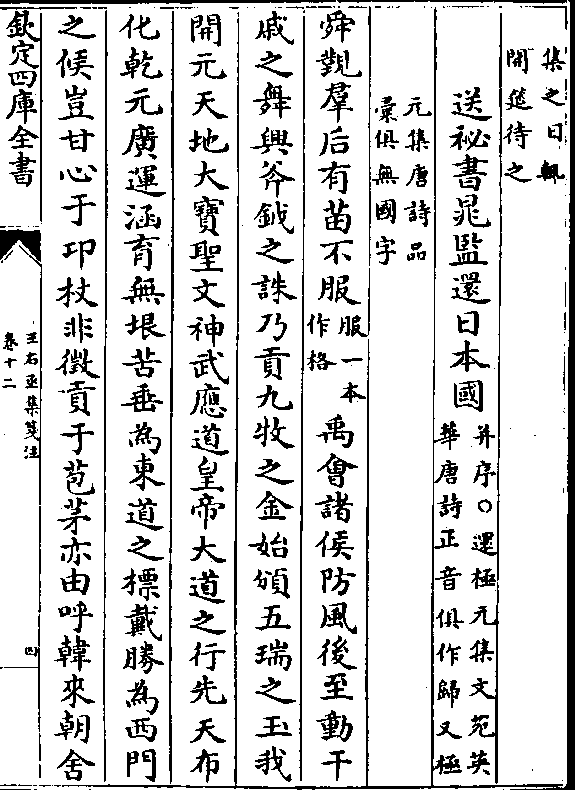 集之日輒
開筵待之
送祕書晁監還日本國
并序○還極元集文苑英
華唐詩正音俱作歸又極
元集唐詩品
彙俱無國字
舜覲羣后有苗不服
服一本
作格
禹會諸侯防風後至動干
戚之舞興斧鉞之誅乃貢九牧之金始頒五瑞之玉我
開元天地大寶聖文神武應道皇帝大道之行先天布
化乾元廣運涵育無垠苦垂為東道之標戴勝為西門
之候豈甘心于邛杖非徵貢于苞茅亦由呼韓來朝舍
欽定四庫全書
王右丞集箋注
卷十二
四